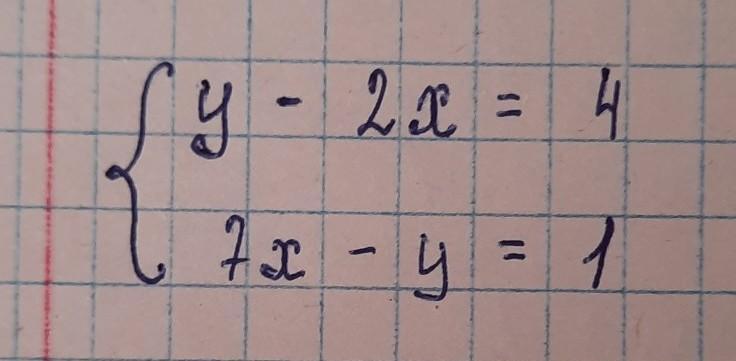 y - 2x = 4
7x - y = 1